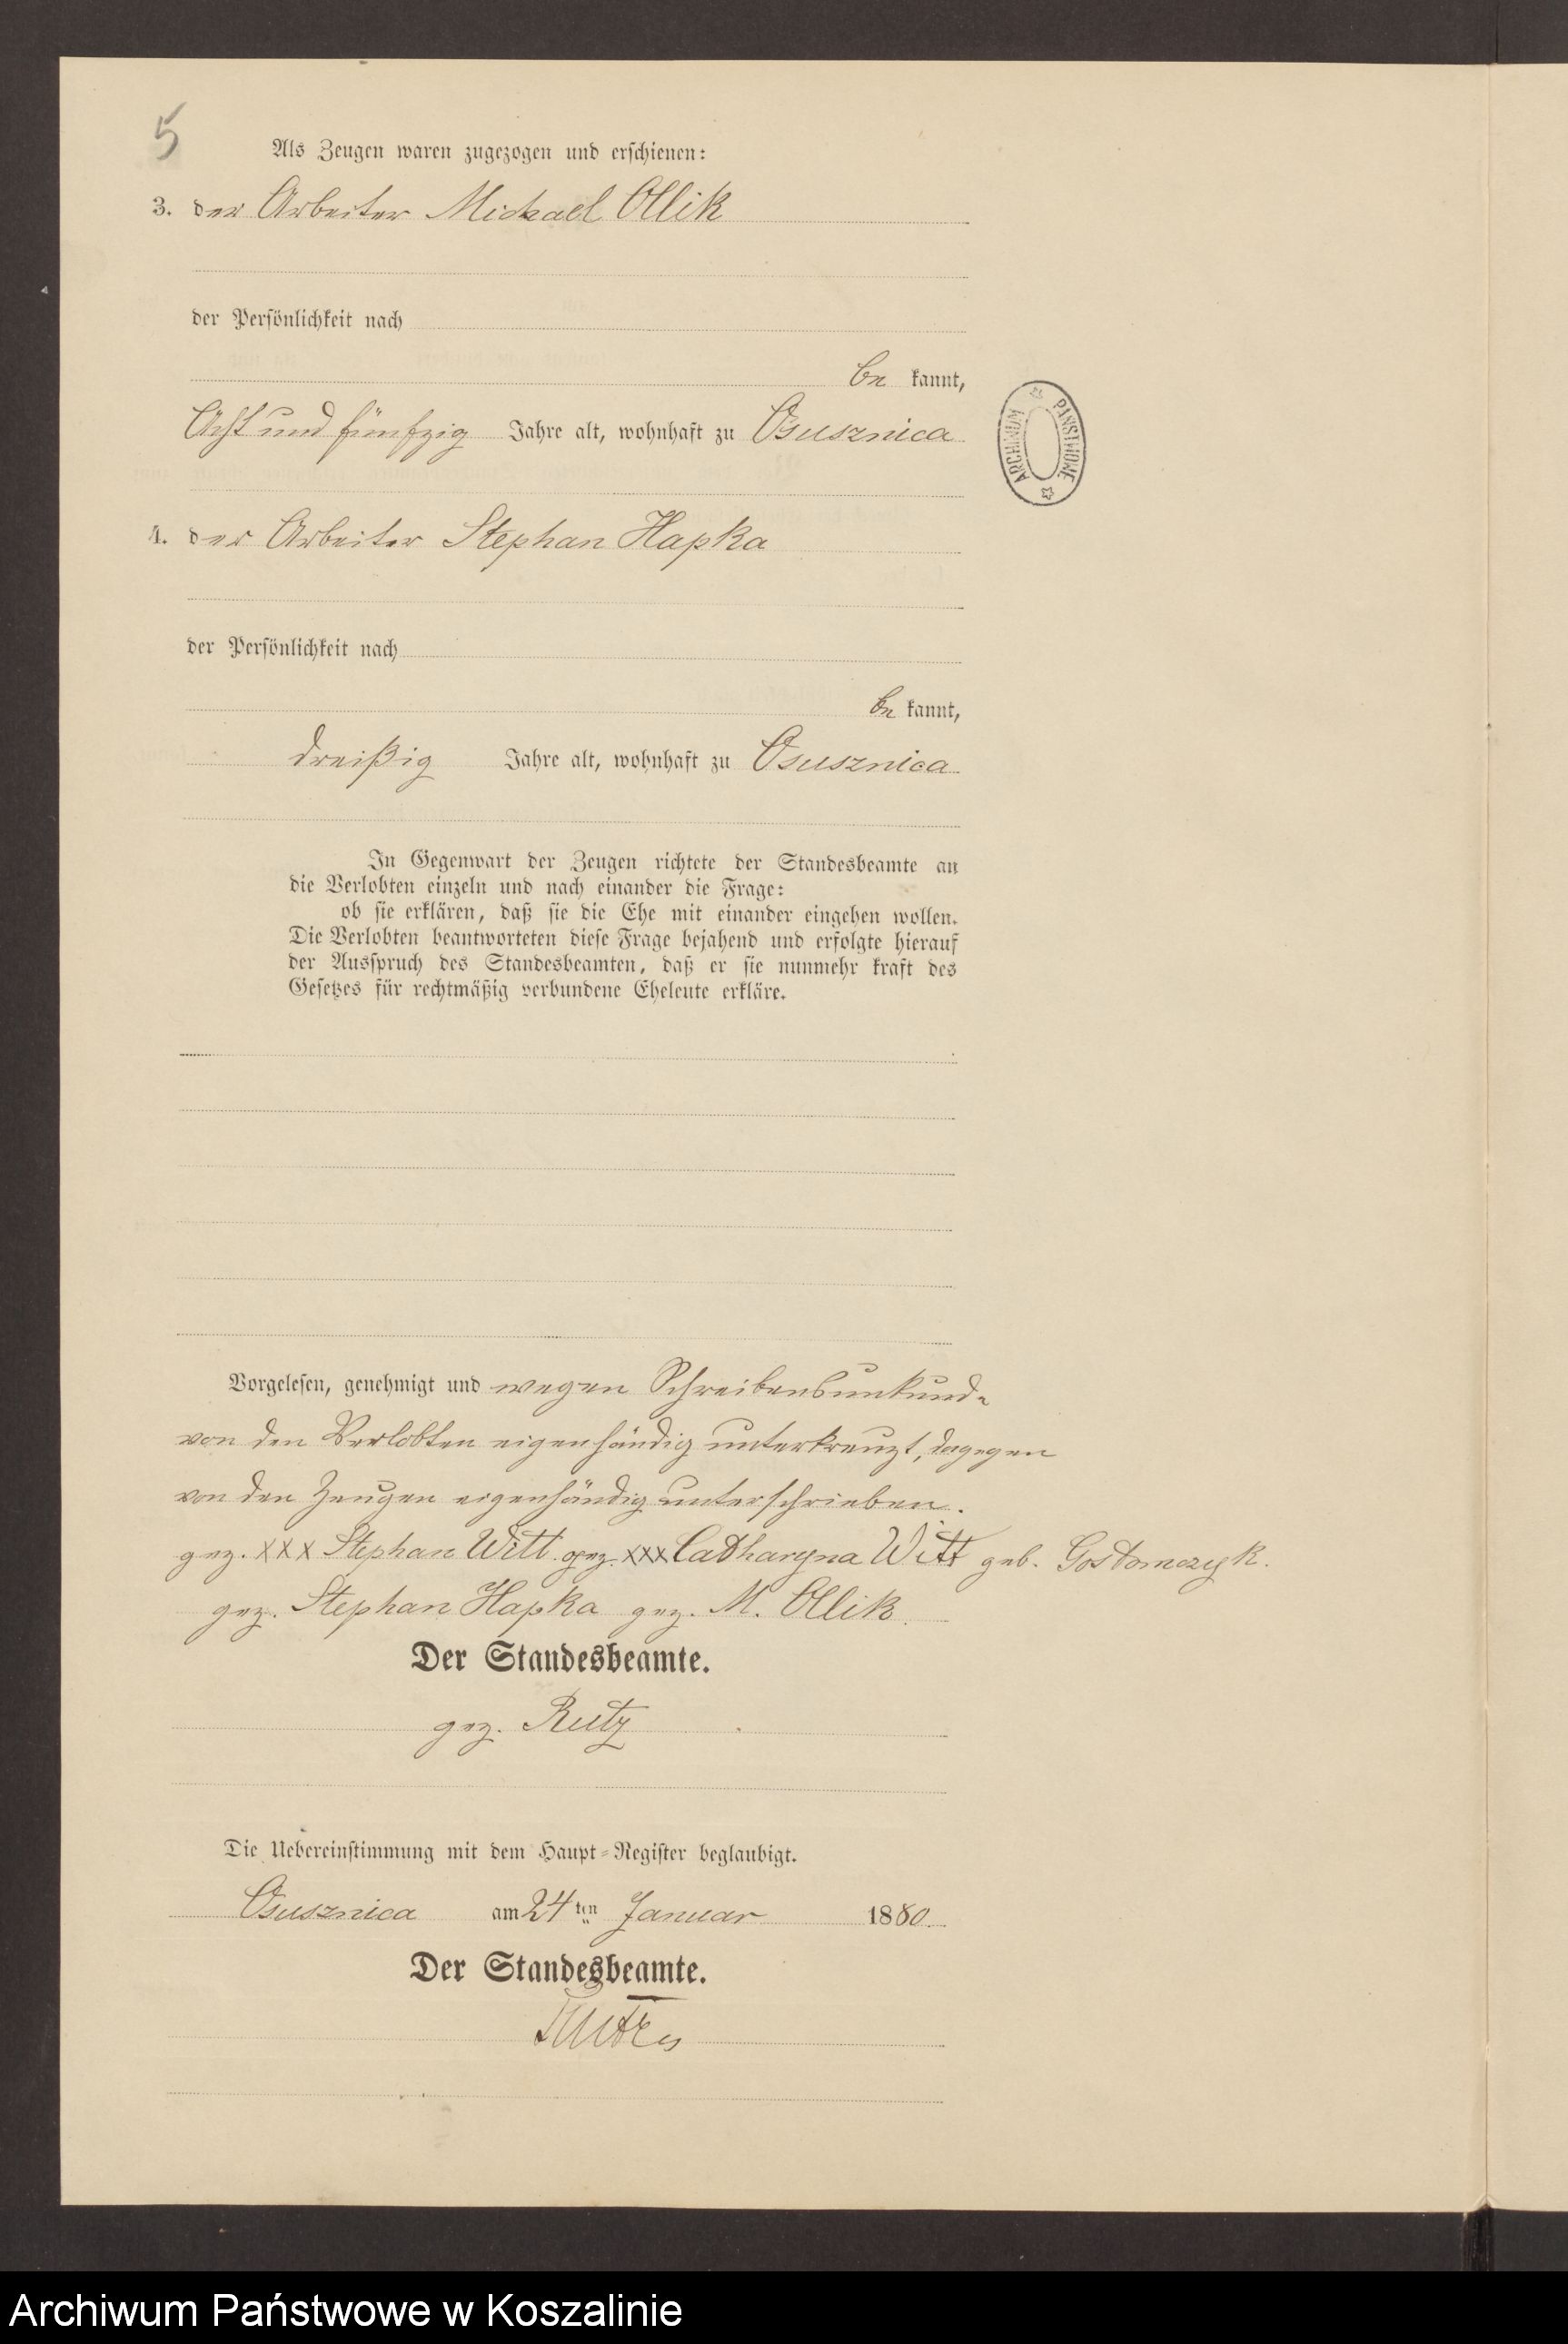 5
Als Zeugen waren zugezogen und erschienen:
3. der Arbeiter Michael Ollik
der Persönlichkeit nach
be kannt,
Acht und fünfzig Jahre alt, wohnhaft zu Osusznica
4. der Arbeiter Stephan Hapka
der Persönlichkeit nach
be kannt,
dreißig Jahre alt, wohnhaft zu Osusznica
In Gegenwart der Zeugen richtete der Standesbeamte an
die Verlobten einzeln und nach einander die Frage:
ob sie erklären, daß sie die Ehe mit einander eingehen wollen.
Die Verlobten beantworteten diese Frage bejahend und erfolgte hierauf
der Ausspruch des Standesbeamten, daß er sie nunmehr kraft des
Gesetzes für rechtmäßig verbundene Eheleute erkläre.
Vorgelesen, genehmigt und wegen Schreibensunkunde
von den Verlobten eigenhändig unterkreuzt, dagegen
von den Zeugen eigenhändig unterschrieben.
gez. XXX Stephan Witt gez. XXX Catharyna Witt geb. Gostomczyk.
gez. Stephan Hapka gez. M. Ollik.
Der Standesbeamte.
gez. Rutz
Die Uebereinstimmung mit dem Haupt-Register beglaubigt.
Osusznica am 24 ten Januar 1880.
Der Standesbeamte.
ARCHIWUM PAŃSTWOWE
Archiwum Państwowe w Koszalinie